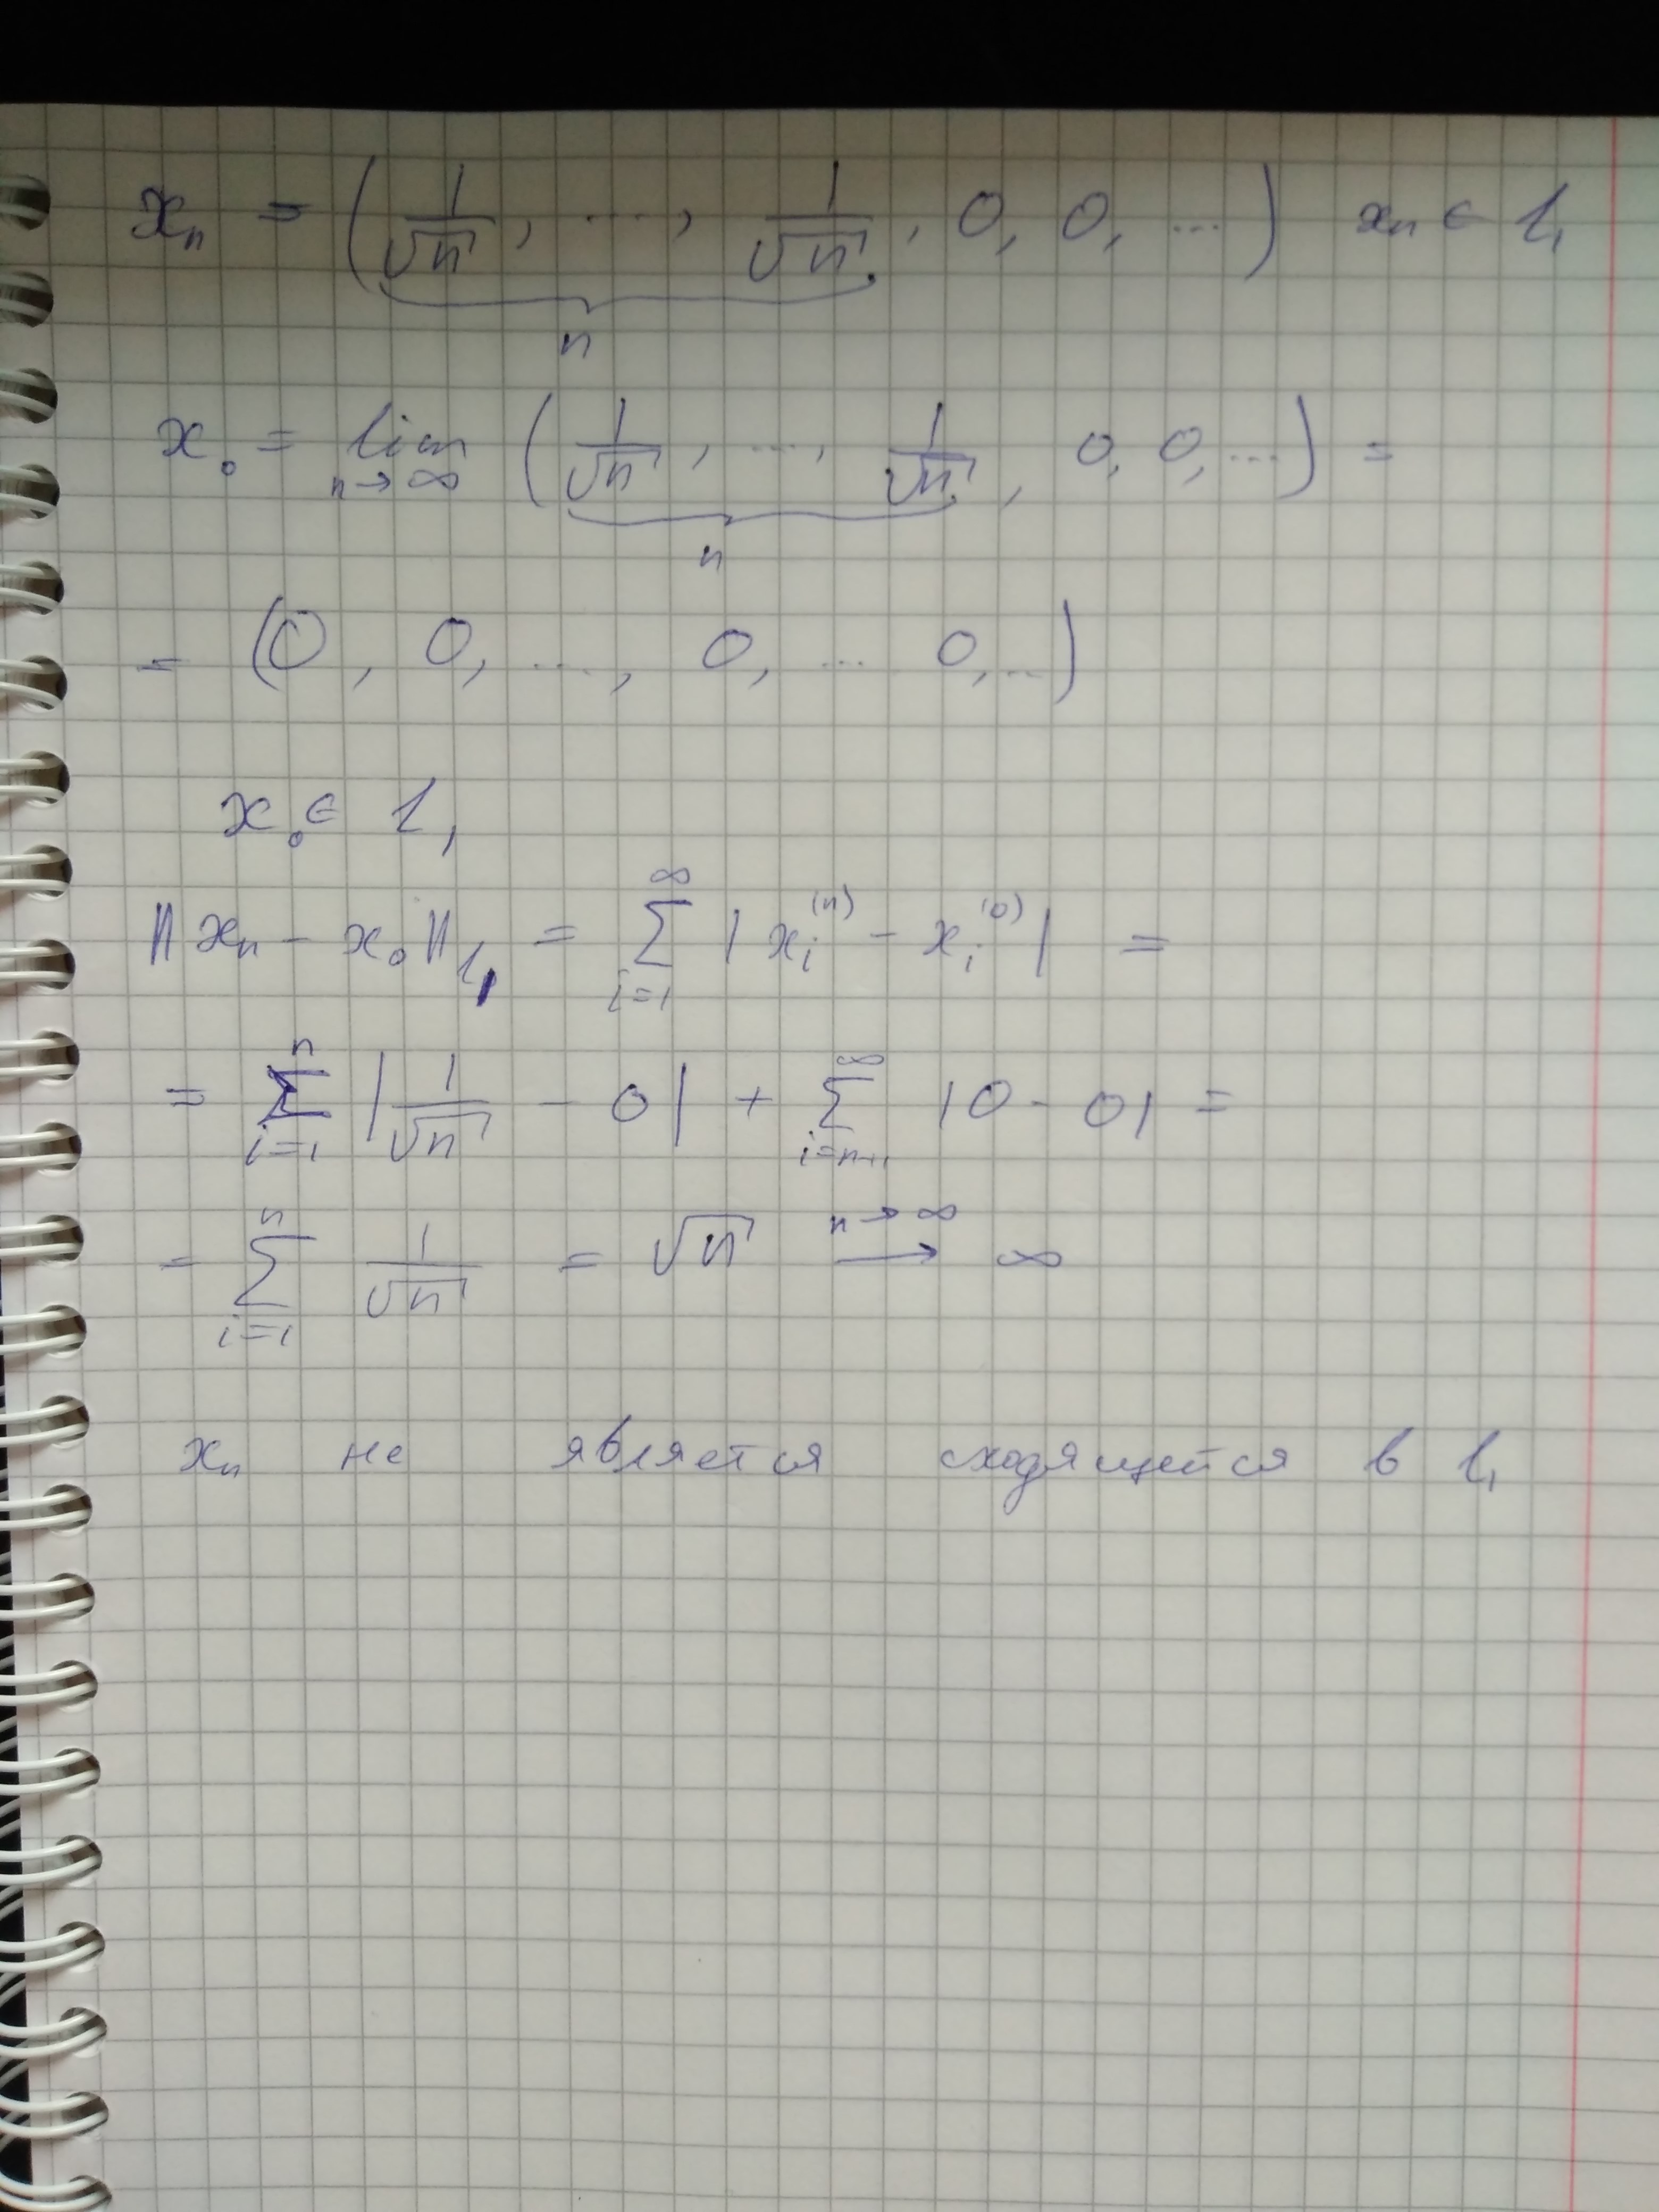 xₙ = (1/√n, ..., 1/√n, 0, 0, ...) xₙ ∈ l₁
n
x₀ = lim (1/√n, ..., 1/√n, 0, 0, ...) =
n→∞
n
= (0, 0, ..., 0, ... 0, ...)
x₀ ∈ l₁
‖xₙ - x₀‖l₁ = ∑_{i=1}^{∞} |xᵢ⁽ⁿ⁾ - xᵢ⁽⁰⁾| =
= ∑_{i=1}^{n} |1/√n - 0| + ∑_{i=n+1}^{∞} |0 - 0| =
= ∑_{i=1}^{n} 1/√n = √n →^{n→∞} ∞
xₙ не является сходящейся в l₁